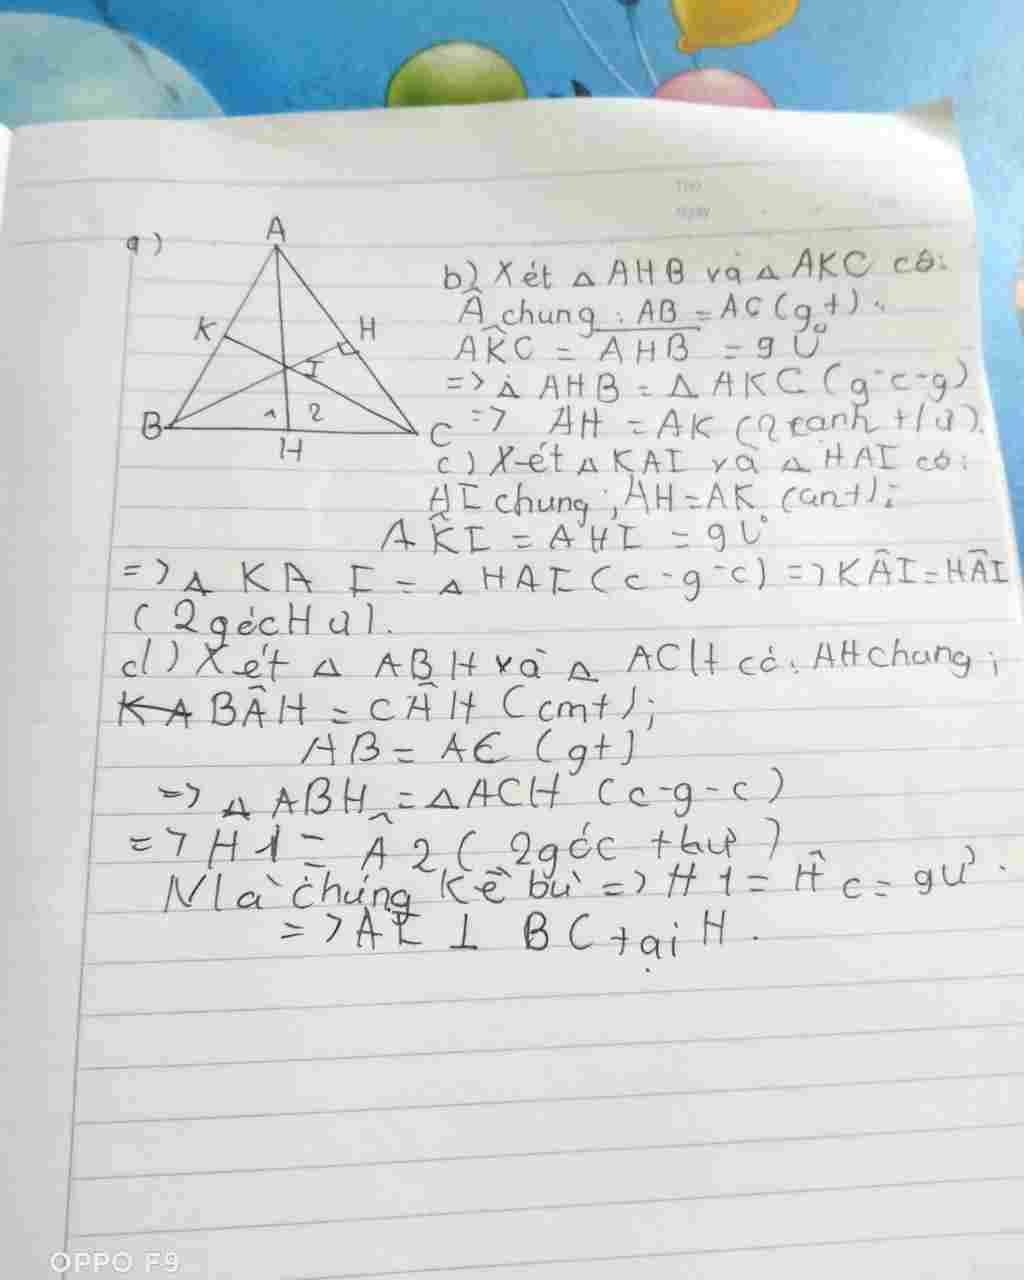 Thứ
Ngày
a)
A
K
H
I
B
1 2
C
H
b) Xét △ AHB và △ AKC có:
Â chung ; AB = AC (gt).
AK̂C = AĤB = 90°
=> △ AHB = △ AKC (g-c-g)
=> AH = AK (2 cạnh t/ứ).
c) Xét △ KAI và △ HAI có:
AI chung ; AH = AK (cmt);
AK̂I = AHI = 90°
=> △ KAI = △ HAI (c-g-c) => KÂI = HÂI
(2 góc t/ứ).
d) Xét △ ABH và △ ACH có: AH chung ;
BÂH = CÂH (cmt);
AB = AC (gt)
=> △ ABH = △ ACH (c-g-c)
=> H1 = Ĥ2 (2 góc thư)
Mà chúng kề bù => H1 = Ĥ c = 90°.
=> AI ⊥ BC tại H.
OPPO F9